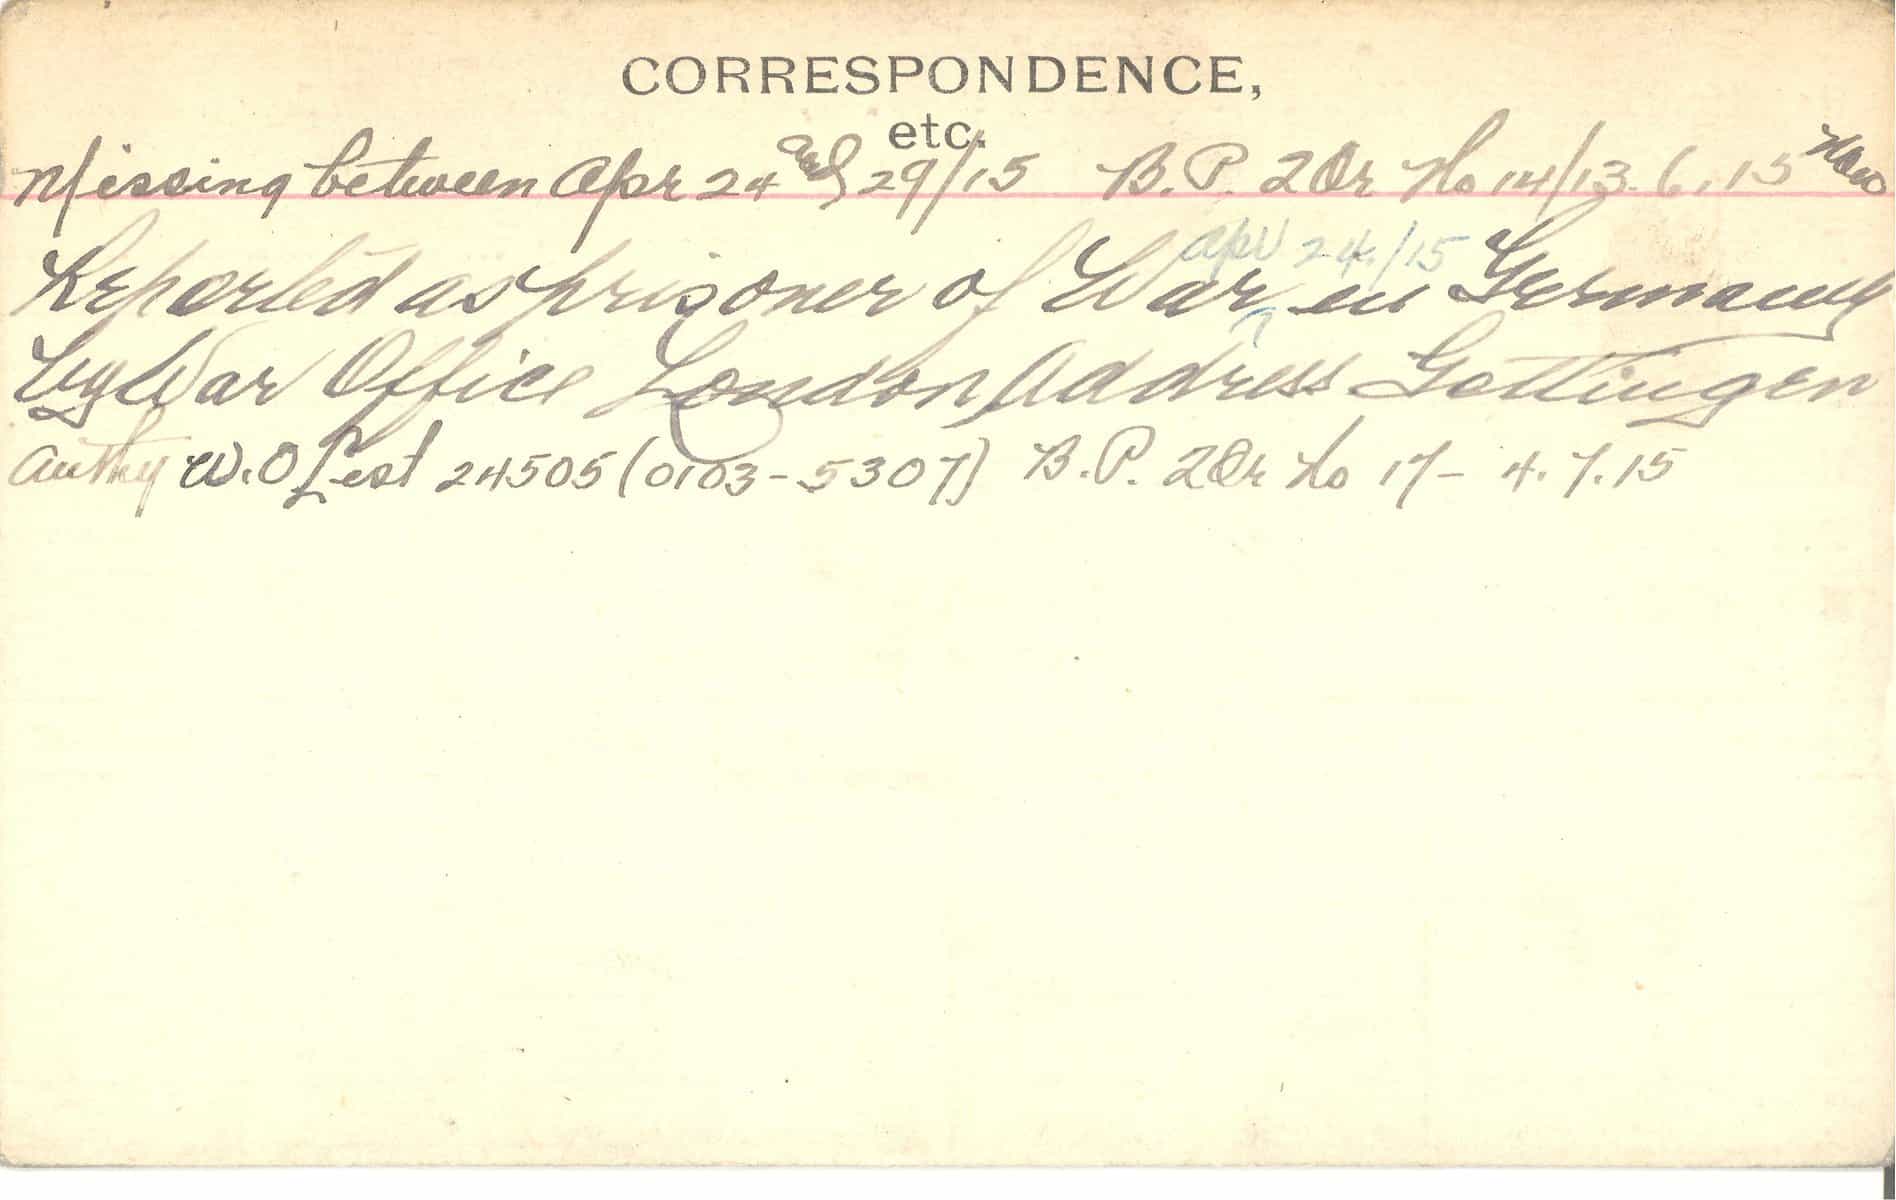 CORRESPONDENCE,
etc.
Missing between Apr 24 and 29/15 B.P. 2 Or No 14/13.6.15 Now
Apr 24/15
Reported as prisoner of War in Germany
by War Office London Address Gottingen
Authy W.O List 24505 (0103-5307) B.P. 2 Or No 17- 4.7.15